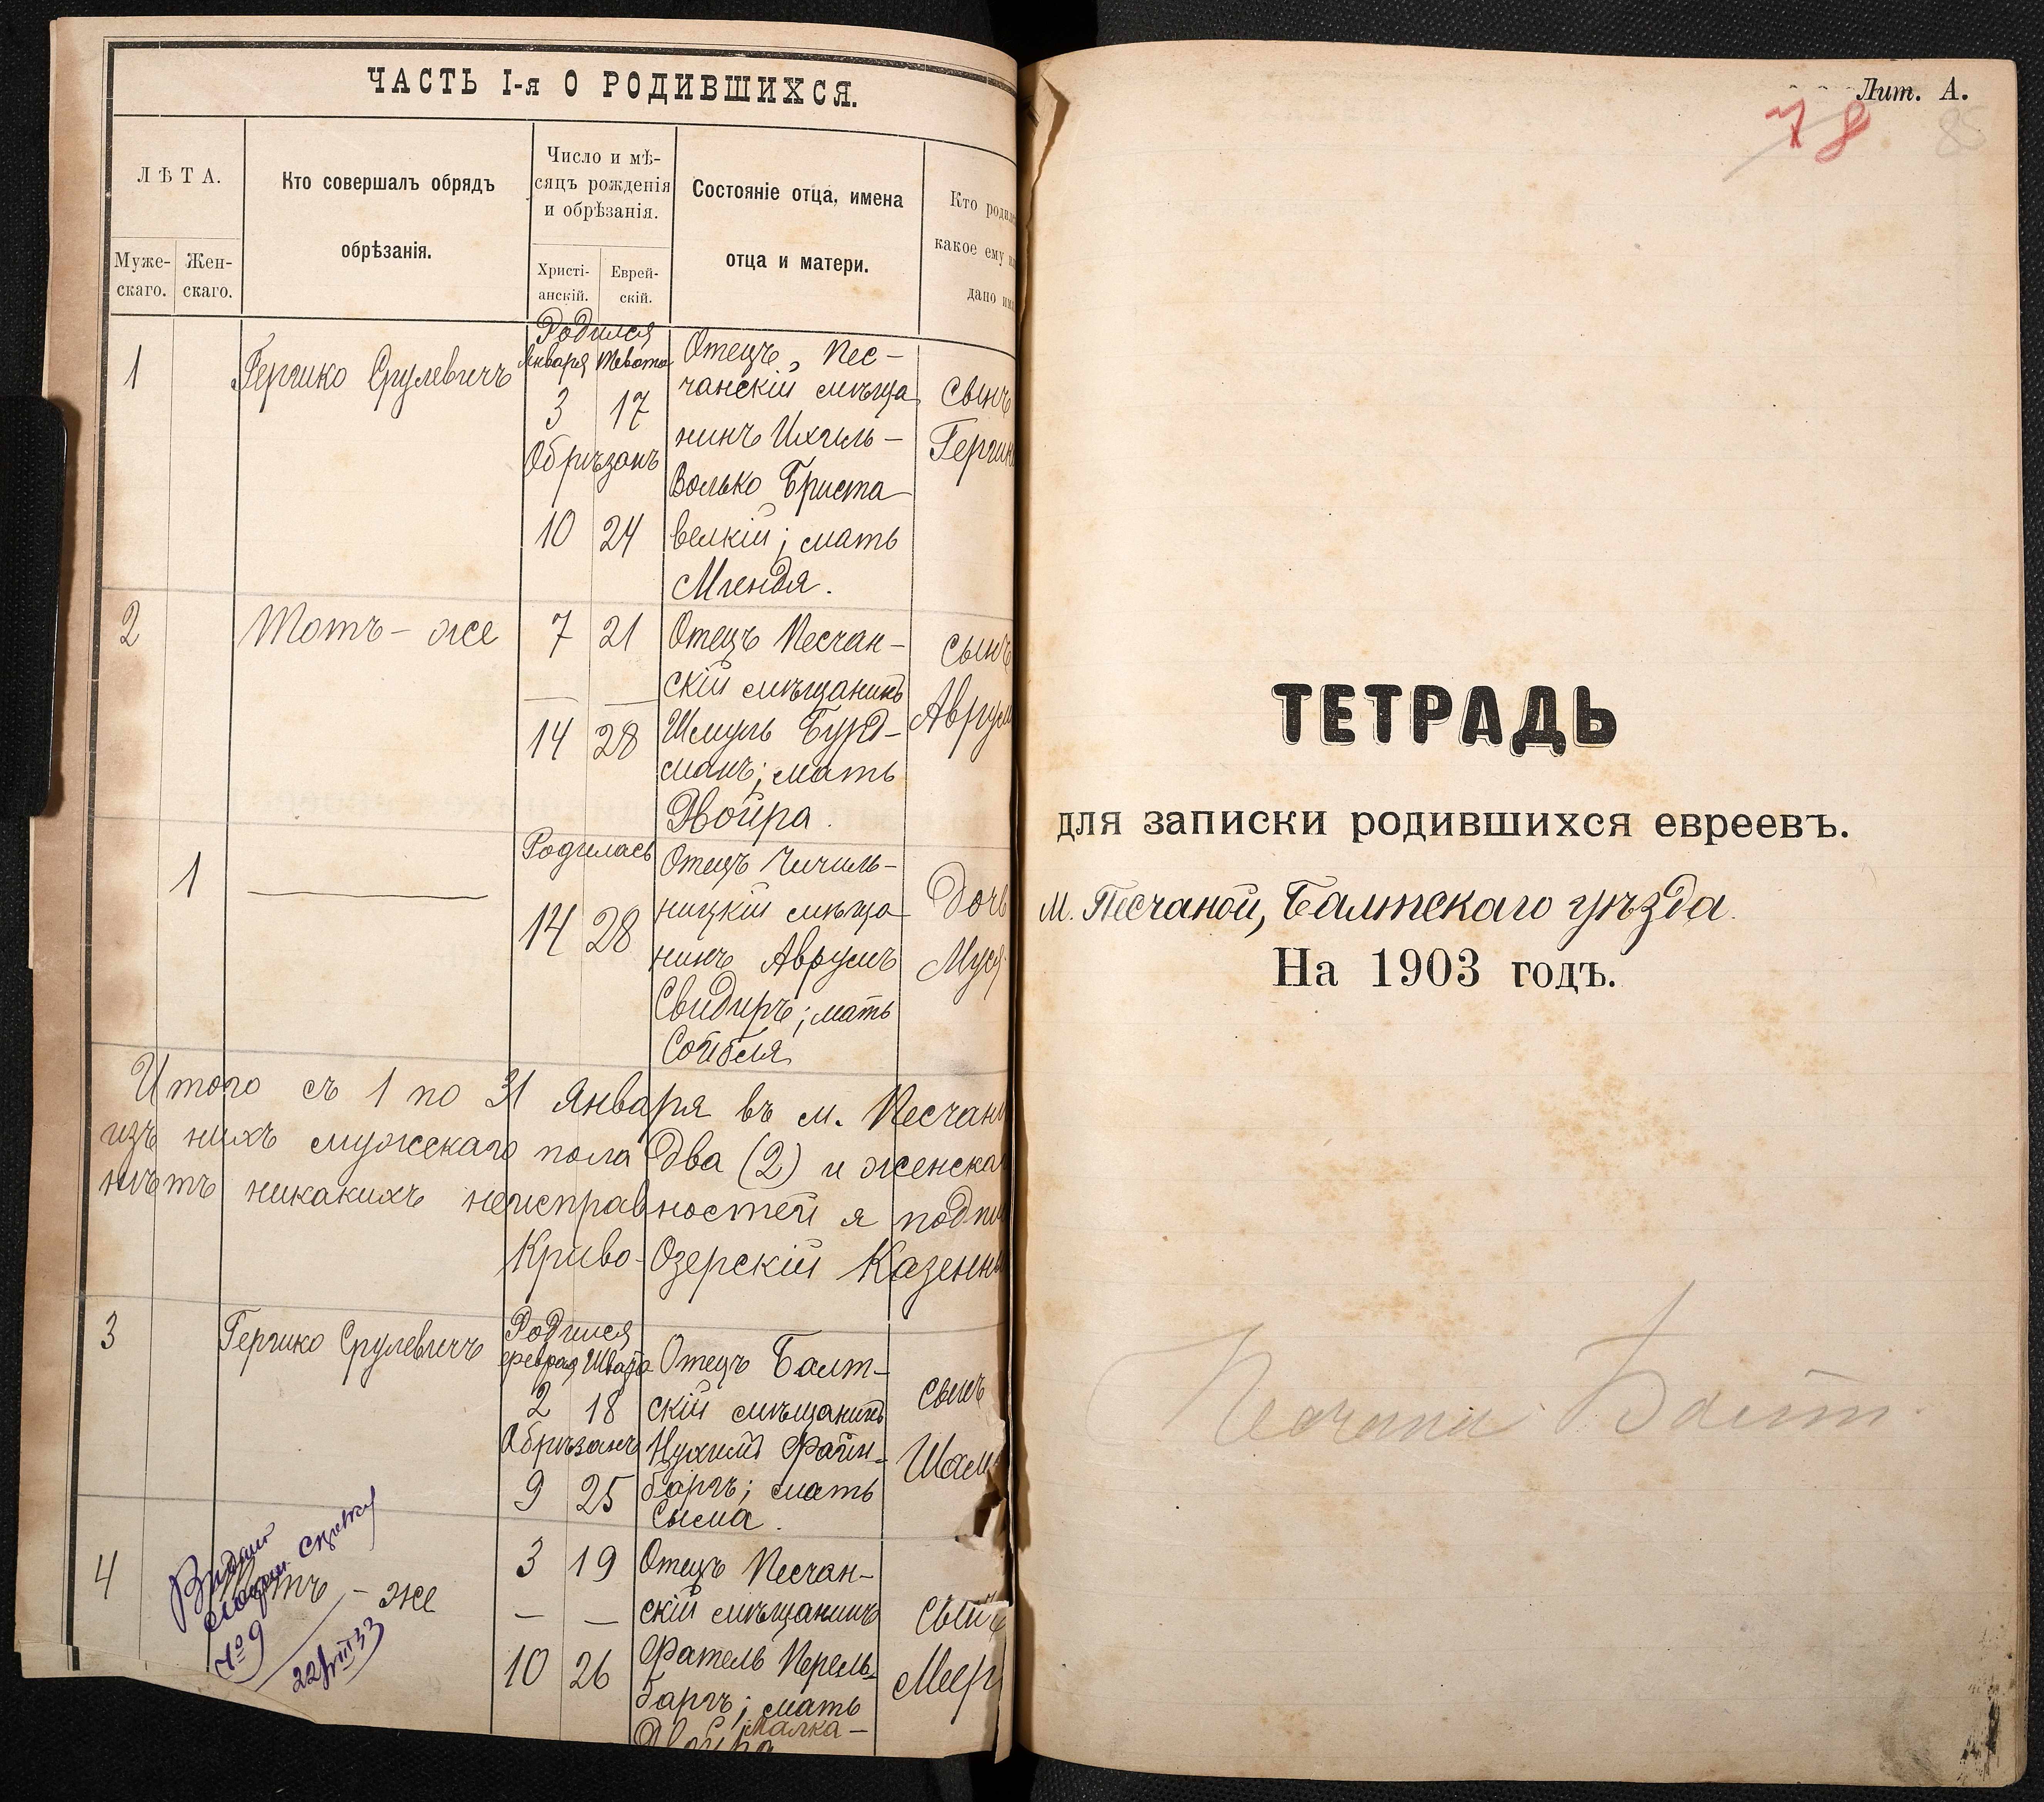 ЧАСТЬ I-я О РОДИВШИХСЯ.
ЛѢТА.
Муже-
скаго.
Жен-
скаго.
Кто совершалъ обрядъ
обрѣзанія.
Число и мѣ-
сяцъ рожденія
и обрѣзанія.
Христі-
анскій.
Еврей-
скій.
Состояніе отца, имена
отца и матери.
Кто родился
какое ему
дано
1
Гершко Срулевичъ
Родился
Января Тевота
3 17
Обрѣзанъ
10 24
Отецъ, Пес-
чанскій мѣща
нинъ Ихиль-
Волько Бриста
вецкій; мать
Мгендя.
сынъ
2
Тотъ-же
7 21
— —
14 28
Отецъ Песчан-
скій мѣщанинъ
Шмуль Бурд-
манъ; мать
Двойра.
сынъ
Аврум
1
Родилась
14 28
Отецъ Чичиль-
ницкій мѣща
нинъ Аврумъ
Свидиръ; мать
Сойбля
Дочь
Муся
Итого съ 1 по 31 Января въ м. Песчан
изъ нихъ мужскаго пола два (2) и женска
нѣтъ никакихъ неисправностей я подпи
Криво-Озерскій Казенн
3
Гершко Срулевичъ
Родился
февраля Швата
2 18
Обрѣзанъ
9 25
Отецъ Балт-
скій мѣщанинъ
Нухимъ Файн-
баргъ; мать
Сыма.
сынъ
4
Тотъ-же
Видано
справку
№ 9
22/VIII 33
3 19
— —
10 26
Отецъ Песчан-
скій мѣщанинъ
Фатель Перель-
баргъ; мать
Малка-
Двойра
сынъ
Меер
Лит. А.
78
85
ТЕТРАДЬ
для записки родившихся евреевъ.
м. Песчаной, Балтскаго уѣзда.
На 1903 годъ.
Песчана Балт.